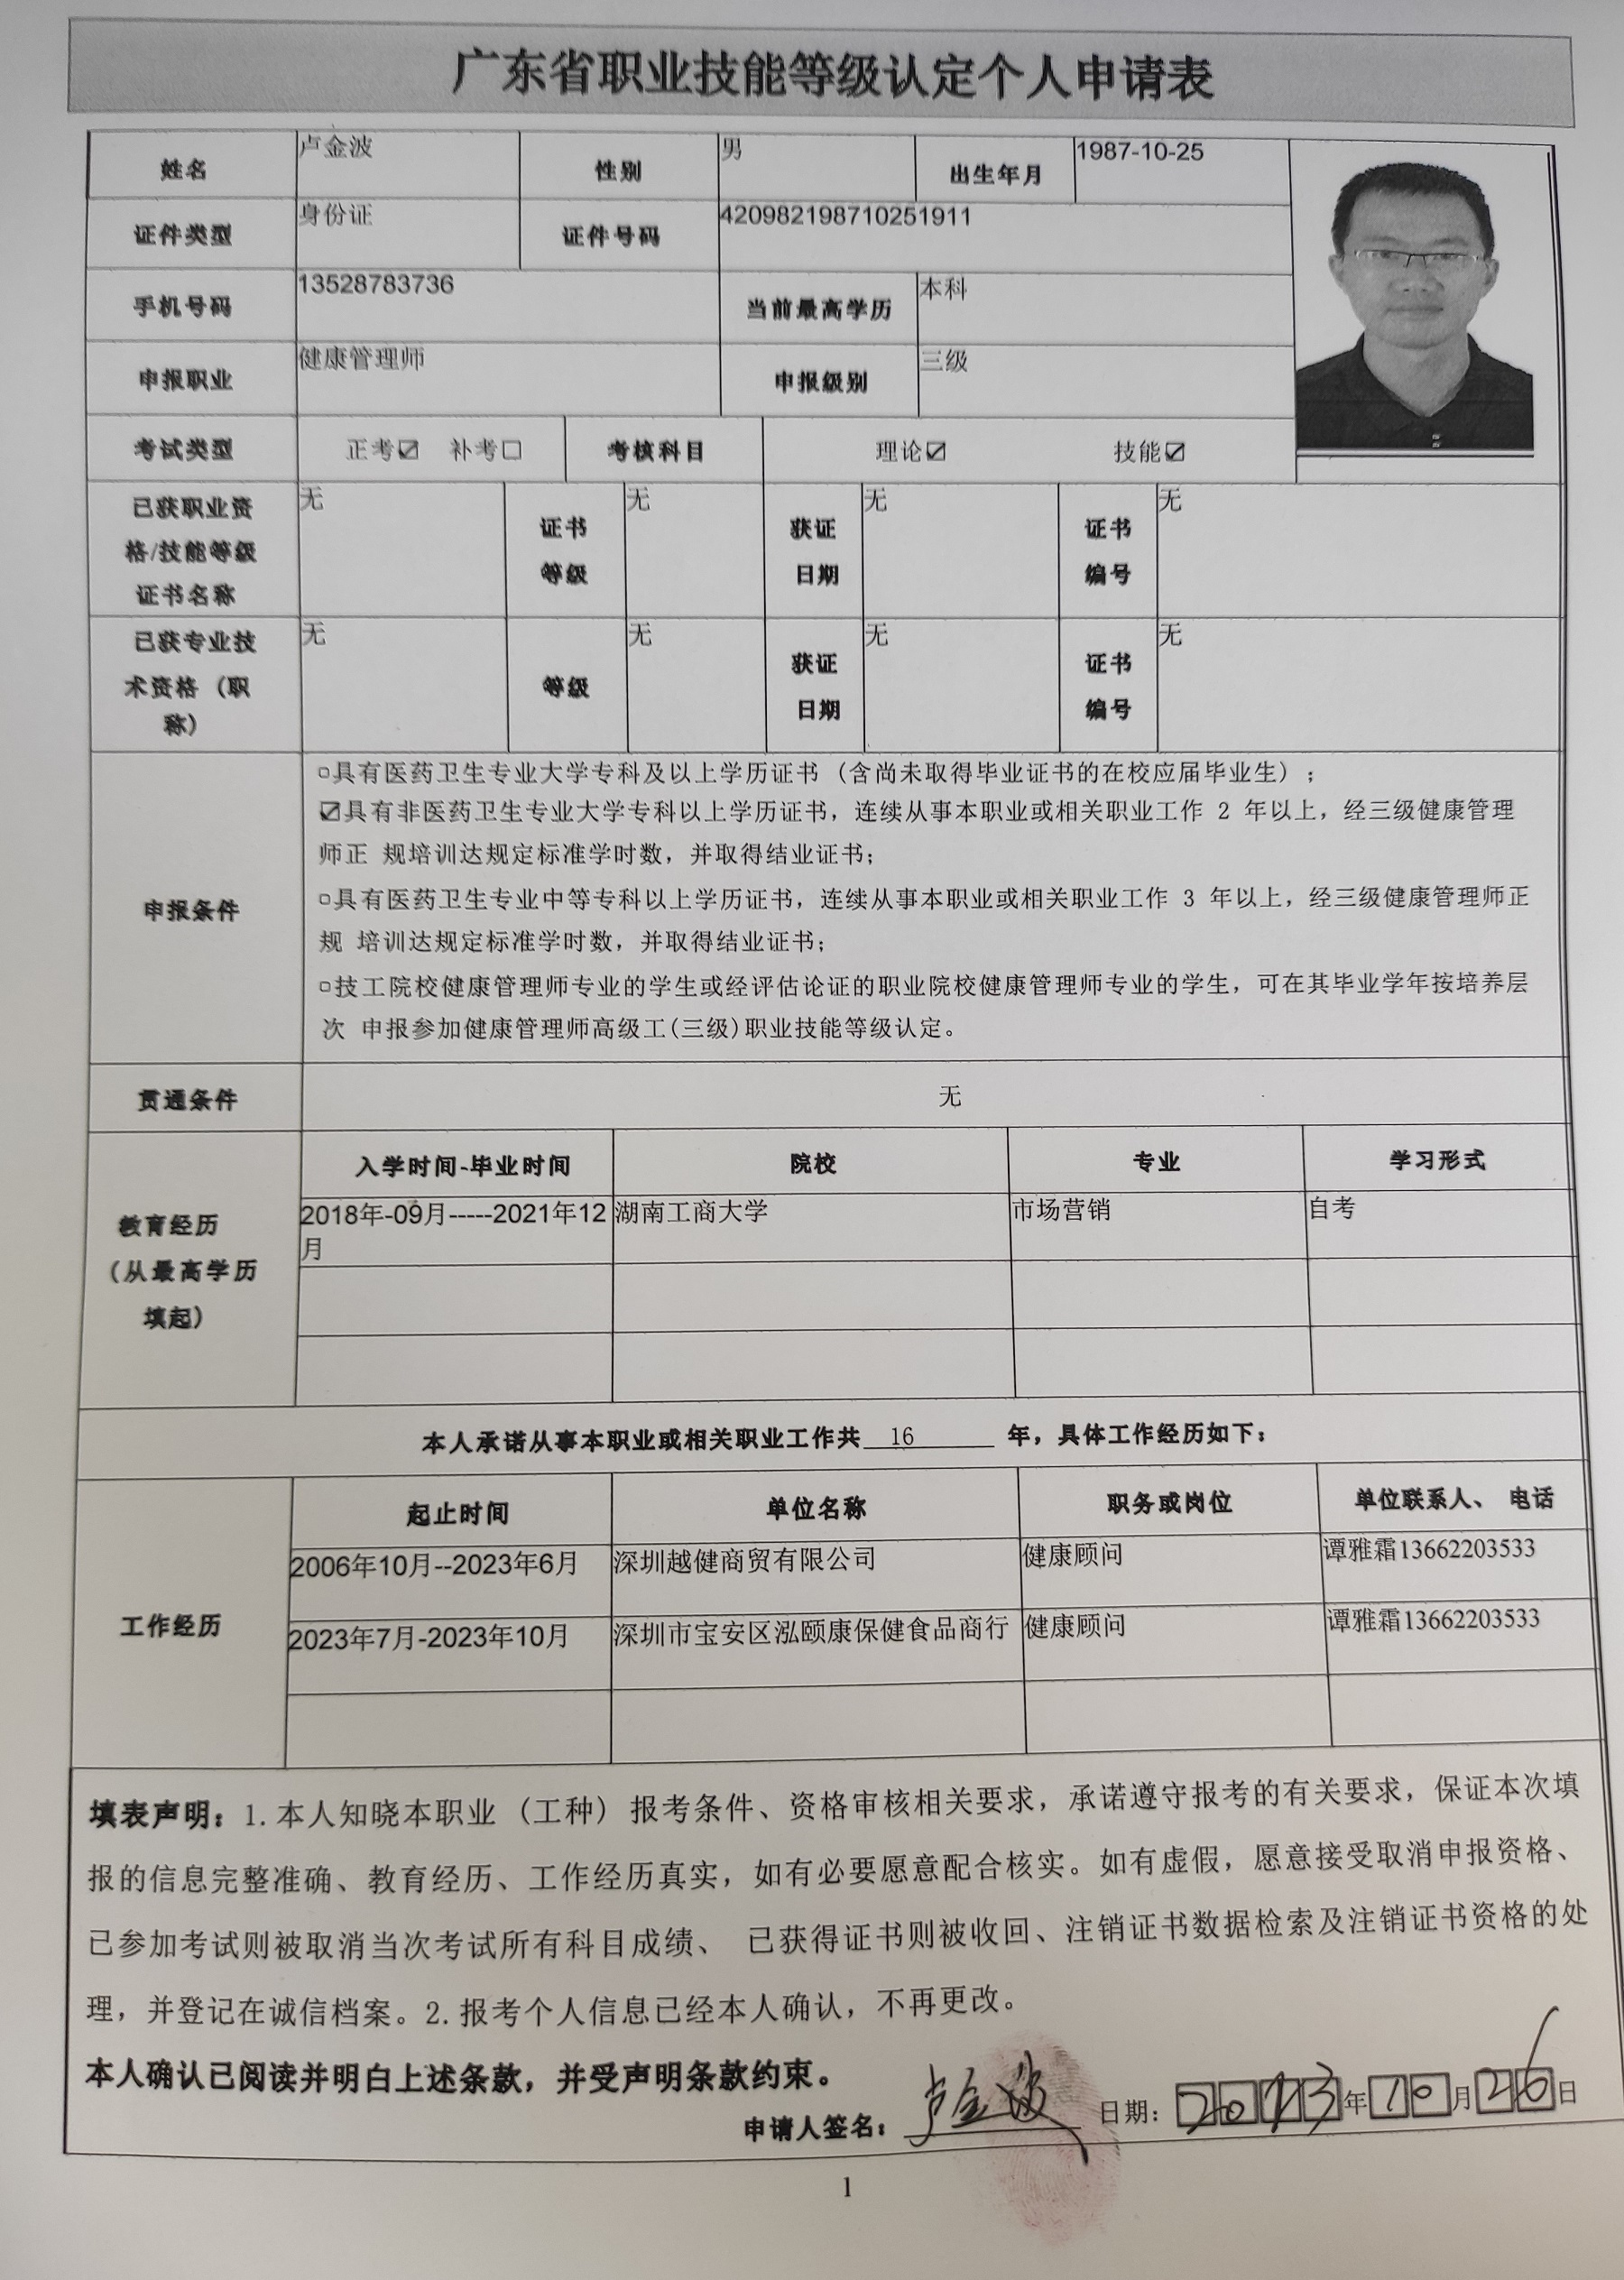 广东省职业技能等级认定个人申请表
姓名 卢金波 性别 男 出生年月 1987-10-25
证件类型 身份证 证件号码 420982198710251911
手机号码 13528783736 当前最高学历 本科
申报职业 健康管理师 申报级别 三级
考试类型 正考☑ 补考☐ 考核科目 理论☑ 技能☑
已获职业资
格/技能等级
证书名称
无
证书
等级
无
获证
日期
无
证书
编号
无
已获专业技
术资格（职
称）
无
等级
无
获证
日期
无
证书
编号
无
申报条件
□具有医药卫生专业大学专科及以上学历证书（含尚未取得毕业证书的在校应届毕业生）；
☑具有非医药卫生专业大学专科以上学历证书，连续从事本职业或相关职业工作 2 年以上，经三级健康管理
师正 规培训达规定标准学时数，并取得结业证书；
□具有医药卫生专业中等专科以上学历证书，连续从事本职业或相关职业工作 3 年以上，经三级健康管理师正
规 培训达规定标准学时数，并取得结业证书；
□技工院校健康管理师专业的学生或经评估论证的职业院校健康管理师专业的学生，可在其毕业学年按培养层
次 申报参加健康管理师高级工(三级)职业技能等级认定。
贯通条件 无
教育经历
（从最高学历
填起）
入学时间-毕业时间 院校 专业 学习形式
2018年-09月-----2021年12 湖南工商大学 市场营销 自考
月
本人承诺从事本职业或相关职业工作共 16 年，具体工作经历如下：
工作经历
起止时间 单位名称 职务或岗位 单位联系人、 电话
2006年10月--2023年6月 深圳越健商贸有限公司 健康顾问 谭雅霜13662203533
2023年7月-2023年10月 深圳市宝安区泓颐康保健食品商行 健康顾问 谭雅霜13662203533
填表声明：1.本人知晓本职业（工种）报考条件、资格审核相关要求，承诺遵守报考的有关要求，保证本次填
报的信息完整准确、教育经历、工作经历真实，如有必要愿意配合核实。如有虚假，愿意接受取消申报资格、
已参加考试则被取消当次考试所有科目成绩、 已获得证书则被收回、注销证书数据检索及注销证书资格的处
理，并登记在诚信档案。2.报考个人信息已经本人确认，不再更改。
本人确认已阅读并明白上述条款，并受声明条款约束。
申请人签名：卢金波 日期：2023年10月26日
1